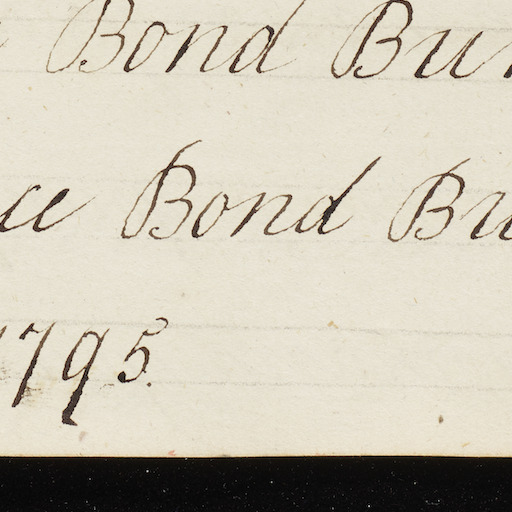 Bond Bu
ce Bond Bu
1795.